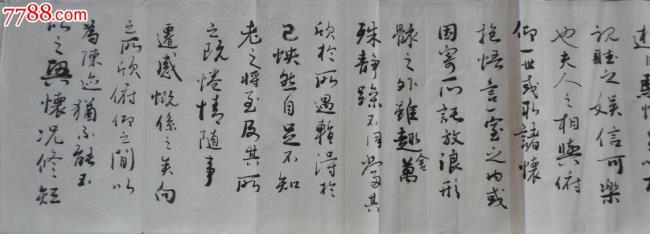 7788.com
目騁懷足以
視聽之娛信可樂
也夫人之相與俯
仰一世或取諸懷
抱悟言一室之內或
因寄所託放浪形
骸之外雖趣舍萬
殊靜躁不同當其
欣於所遇輒得於
己怏然自足不知
老之將至及其所
之既惓情隨事
遷感慨係之矣向
之所欣俯仰之閒以
為陳迹猶不能不
以之興懷況修短